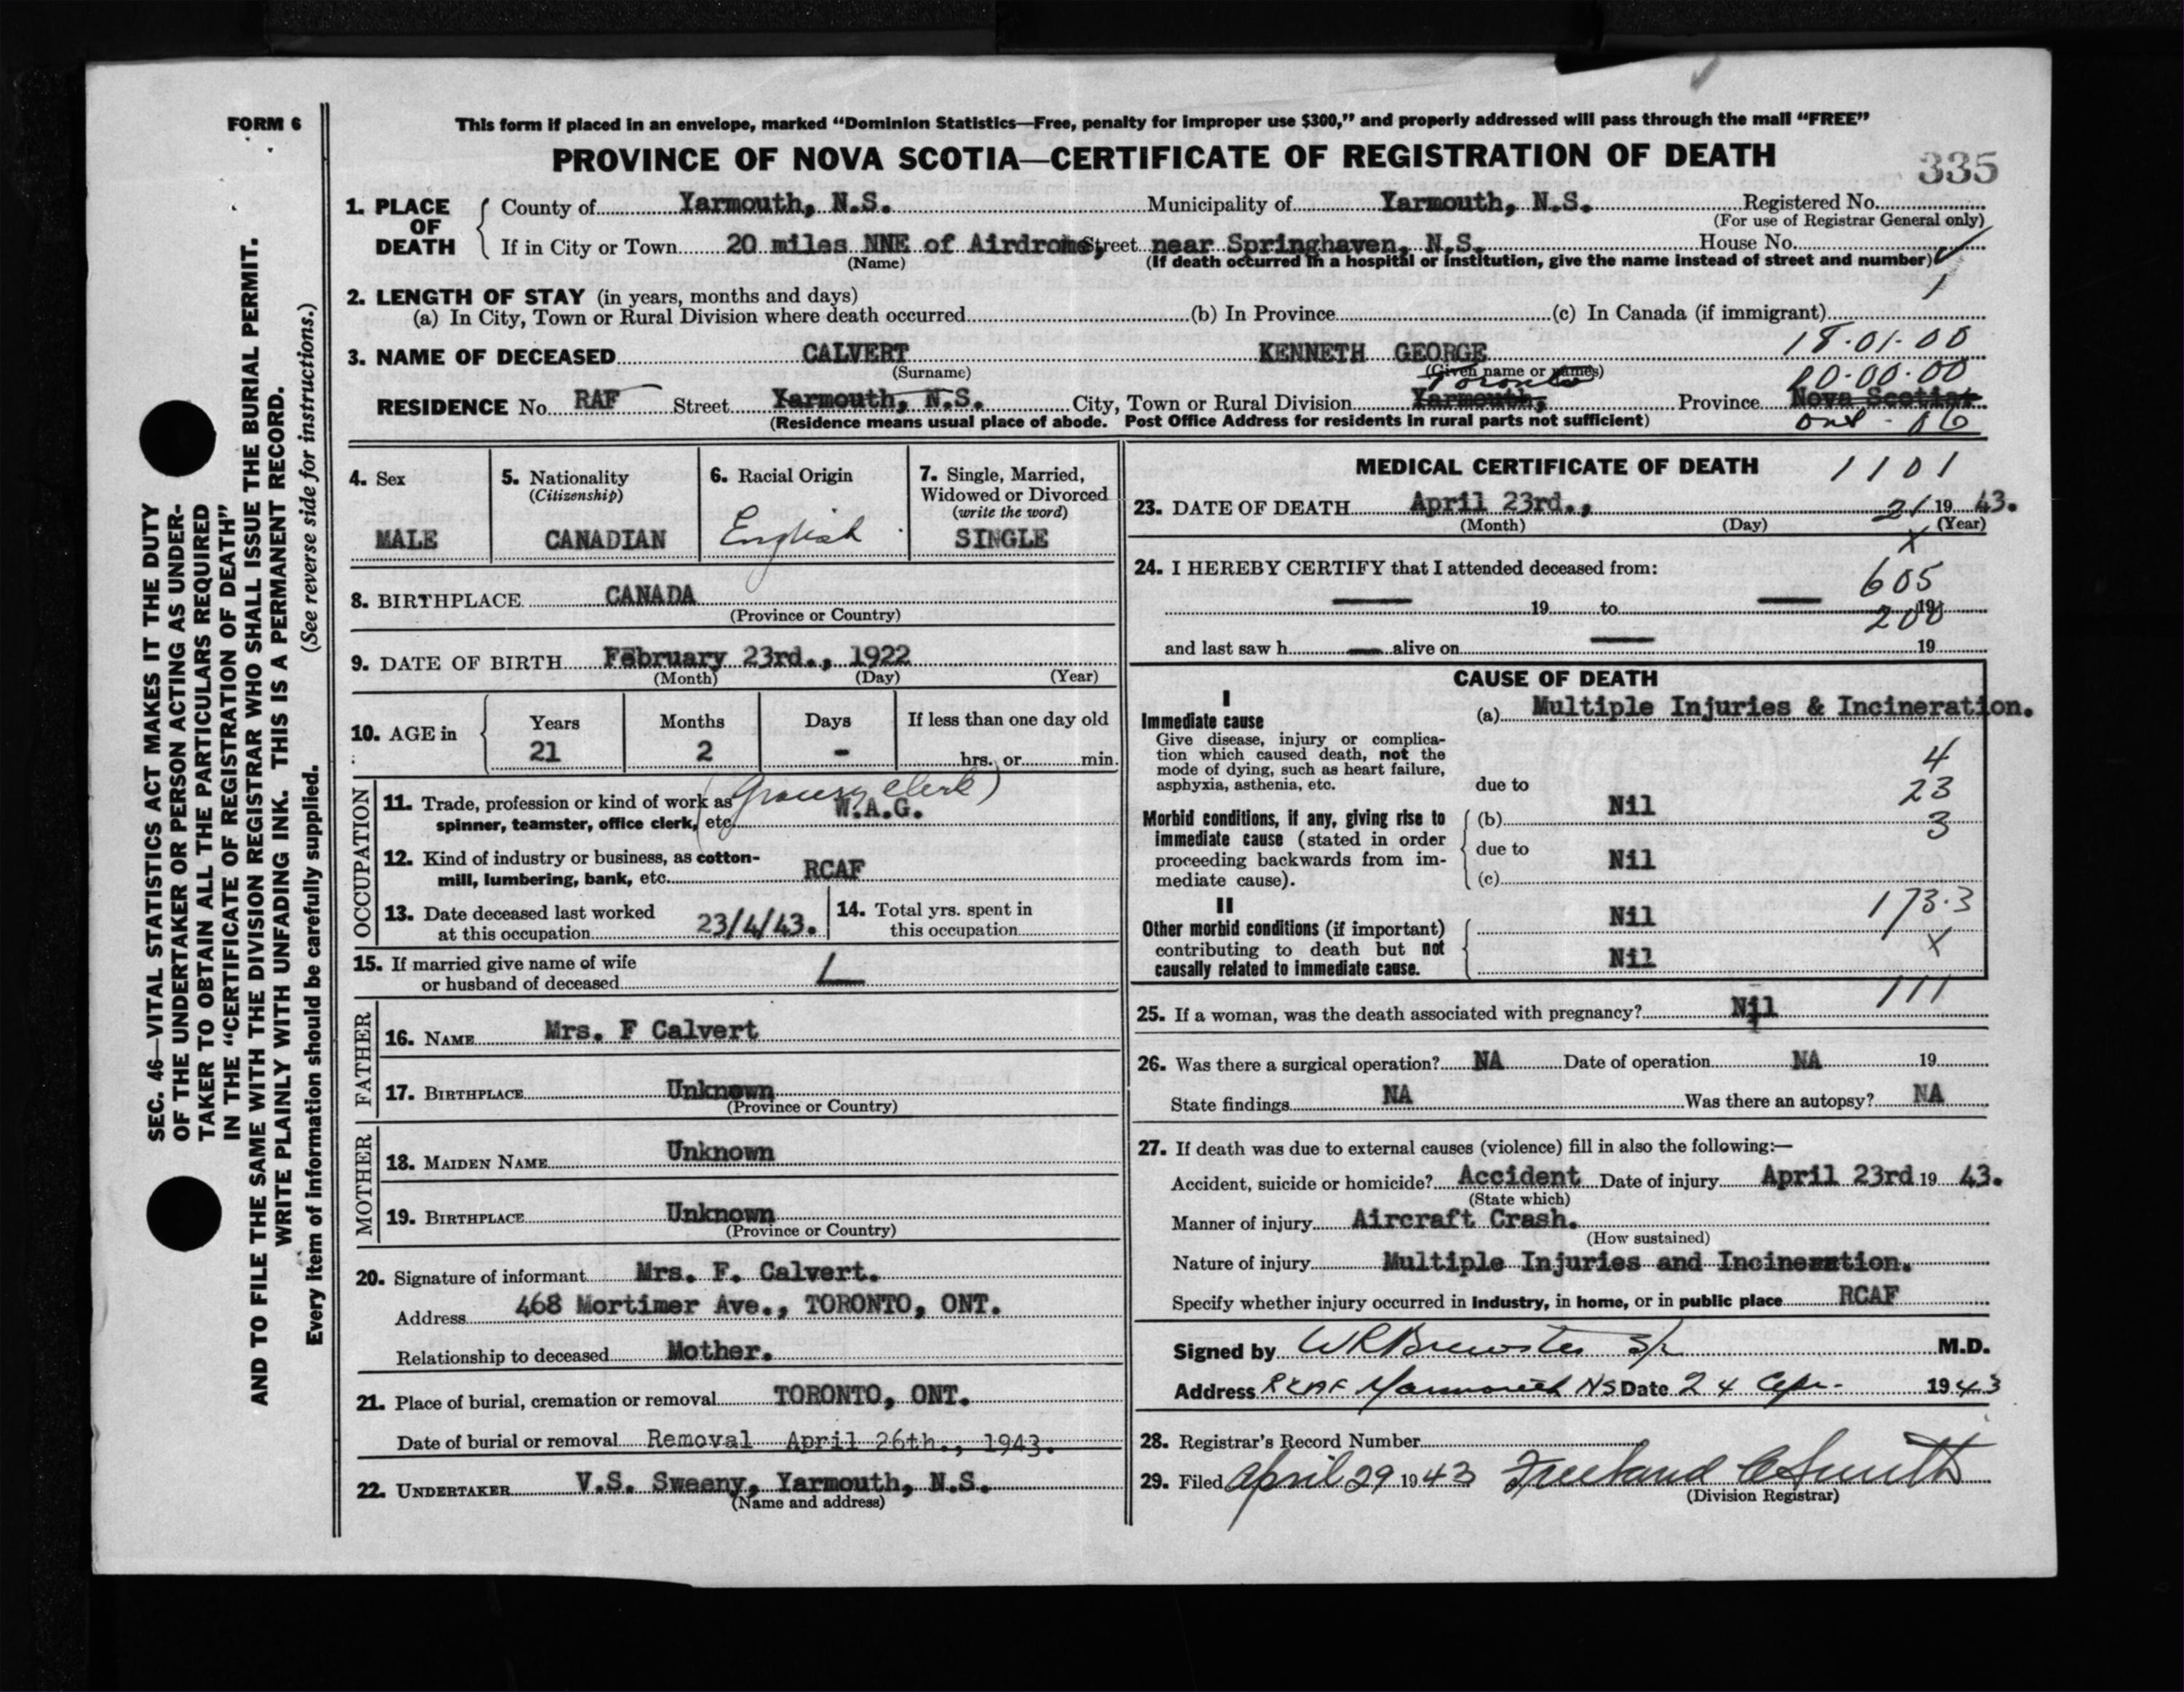 FORM 6
This form if placed in an envelope, marked "Dominion Statistics—Free, penalty for improper use $300," and properly addressed will pass through the mail "FREE"
PROVINCE OF NOVA SCOTIA—CERTIFICATE OF REGISTRATION OF DEATH
335
1. PLACE OF DEATH
County of Yarmouth, N.S. Municipality of Yarmouth, N.S. Registered No.
(For use of Registrar General only)
If in City or Town 20 miles NNE of Airdrome, Street near Springhaven, N.S. House No.
(Name) (If death occurred in a hospital or institution, give the name instead of street and number)
1
2. LENGTH OF STAY (in years, months and days)
(a) In City, Town or Rural Division where death occurred (b) In Province (c) In Canada (if immigrant)
18-01-00
3. NAME OF DECEASED CALVERT KENNETH GEORGE
(Surname) (Given name or names)
Toronto 00-00-00
RESIDENCE No. RAF Street Yarmouth, N.S. City, Town or Rural Division Yarmouth, Province Nova Scotia.
(Residence means usual place of abode. Post Office Address for residents in rural parts not sufficient) Ont - 06
4. Sex MALE
5. Nationality (Citizenship) CANADIAN
6. Racial Origin English
7. Single, Married, Widowed or Divorced (write the word) SINGLE
8. BIRTHPLACE CANADA
(Province or Country)
9. DATE OF BIRTH February 23rd., 1922
(Month) (Day) (Year)
10. AGE in Years Months Days If less than one day old
21 2 - hrs. or min.
OCCUPATION
11. Trade, profession or kind of work as (Grocery Clerk)
spinner, teamster, office clerk, etc. W.A.G.
12. Kind of industry or business, as cotton-
mill, lumbering, bank, etc. RCAF
13. Date deceased last worked
at this occupation 23/4/43.
14. Total yrs. spent in
this occupation
15. If married give name of wife
or husband of deceased
FATHER
16. NAME Mrs. F Calvert
17. BIRTHPLACE Unknown
(Province or Country)
MOTHER
18. MAIDEN NAME Unknown
19. BIRTHPLACE Unknown
(Province or Country)
20. Signature of informant Mrs. F. Calvert.
Address 468 Mortimer Ave., TORONTO, ONT.
Relationship to deceased Mother.
21. Place of burial, cremation or removal TORONTO, ONT.
Date of burial or removal Removal April 26th., 1943.
22. UNDERTAKER V.S. Sweeny, Yarmouth, N.S.
(Name and address)
MEDICAL CERTIFICATE OF DEATH 1101
23. DATE OF DEATH April 23rd., 21 19 43.
(Month) (Day) (Year)
X
24. I HEREBY CERTIFY that I attended deceased from:
605
19 to 19
200
and last saw h alive on 19
CAUSE OF DEATH
I
Immediate cause (a) Multiple Injuries & Incineration.
Give disease, injury or complica-
tion which caused death, not the
mode of dying, such as heart failure,
asphyxia, asthenia, etc. due to
4
23
3
Morbid conditions, if any, giving rise to (b) Nil
immediate cause (stated in order due to
proceeding backwards from im-
mediate cause). (c) Nil
II
Other morbid conditions (if important) Nil 173.3
contributing to death but not X
causally related to immediate cause. Nil
111
25. If a woman, was the death associated with pregnancy? Nil
26. Was there a surgical operation? NA Date of operation NA 19
State findings NA Was there an autopsy? NA
27. If death was due to external causes (violence) fill in also the following:—
Accident, suicide or homicide? Accident Date of injury April 23rd 19 43.
(State which)
Manner of injury Aircraft Crash.
(How sustained)
Nature of injury Multiple Injuries and Incineration.
Specify whether injury occurred in industry, in home, or in public place RCAF
Signed by WR Brewster S/L M.D.
Address RCAF Yarmouth NS Date 24 Apr. 1943
28. Registrar's Record Number
29. Filed April 29 1943 Freeland C Smith
(Division Registrar)
SEC. 46—VITAL STATISTICS ACT MAKES IT THE DUTY
OF THE UNDERTAKER OR PERSON ACTING AS UNDER-
TAKER TO OBTAIN ALL THE PARTICULARS REQUIRED
IN THE "CERTIFICATE OF REGISTRATION OF DEATH"
AND TO FILE THE SAME WITH THE DIVISION REGISTRAR WHO SHALL ISSUE THE BURIAL PERMIT.
WRITE PLAINLY WITH UNFADING INK. THIS IS A PERMANENT RECORD.
Every item of information should be carefully supplied. (See reverse side for instructions.)